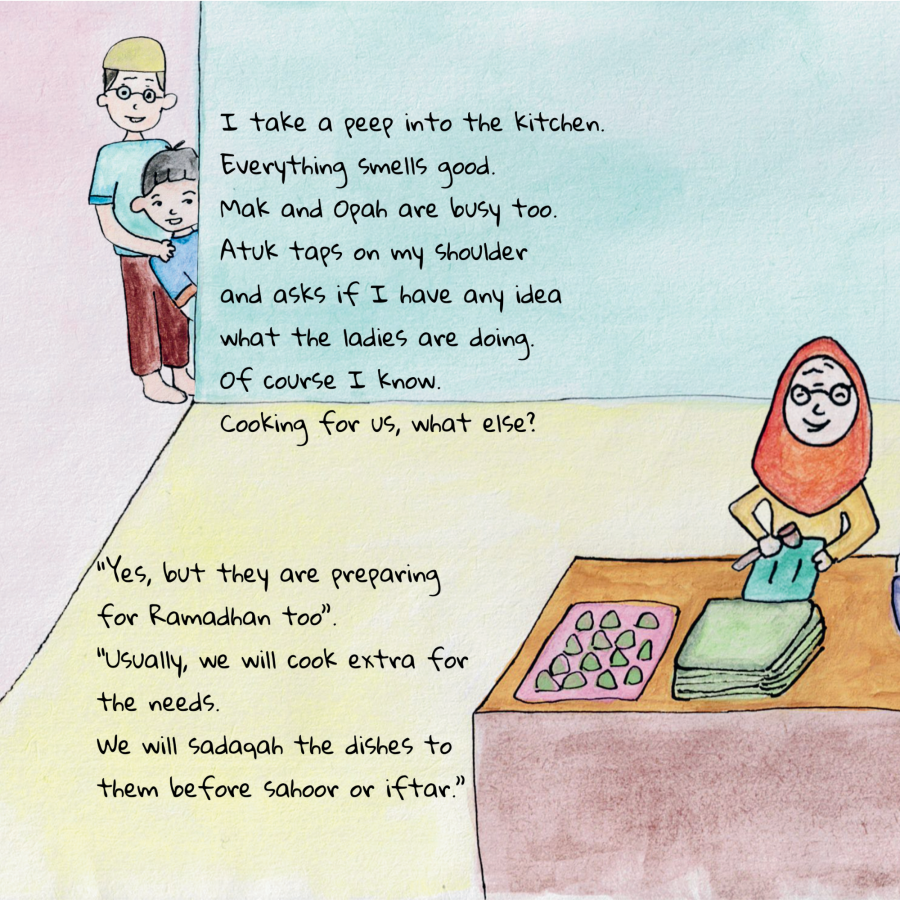 I take a peep into the kitchen.
Everything smells good.
Mak and Opah are busy too.
Atuk taps on my shoulder
and asks if I have any idea
what the ladies are doing.
Of course I know.
Cooking for us, what else?
"Yes, but they are preparing
for Ramadhan too".
"Usually, we will cook extra for
the needs.
We will sadaqah the dishes to
them before sahoor or iftar."